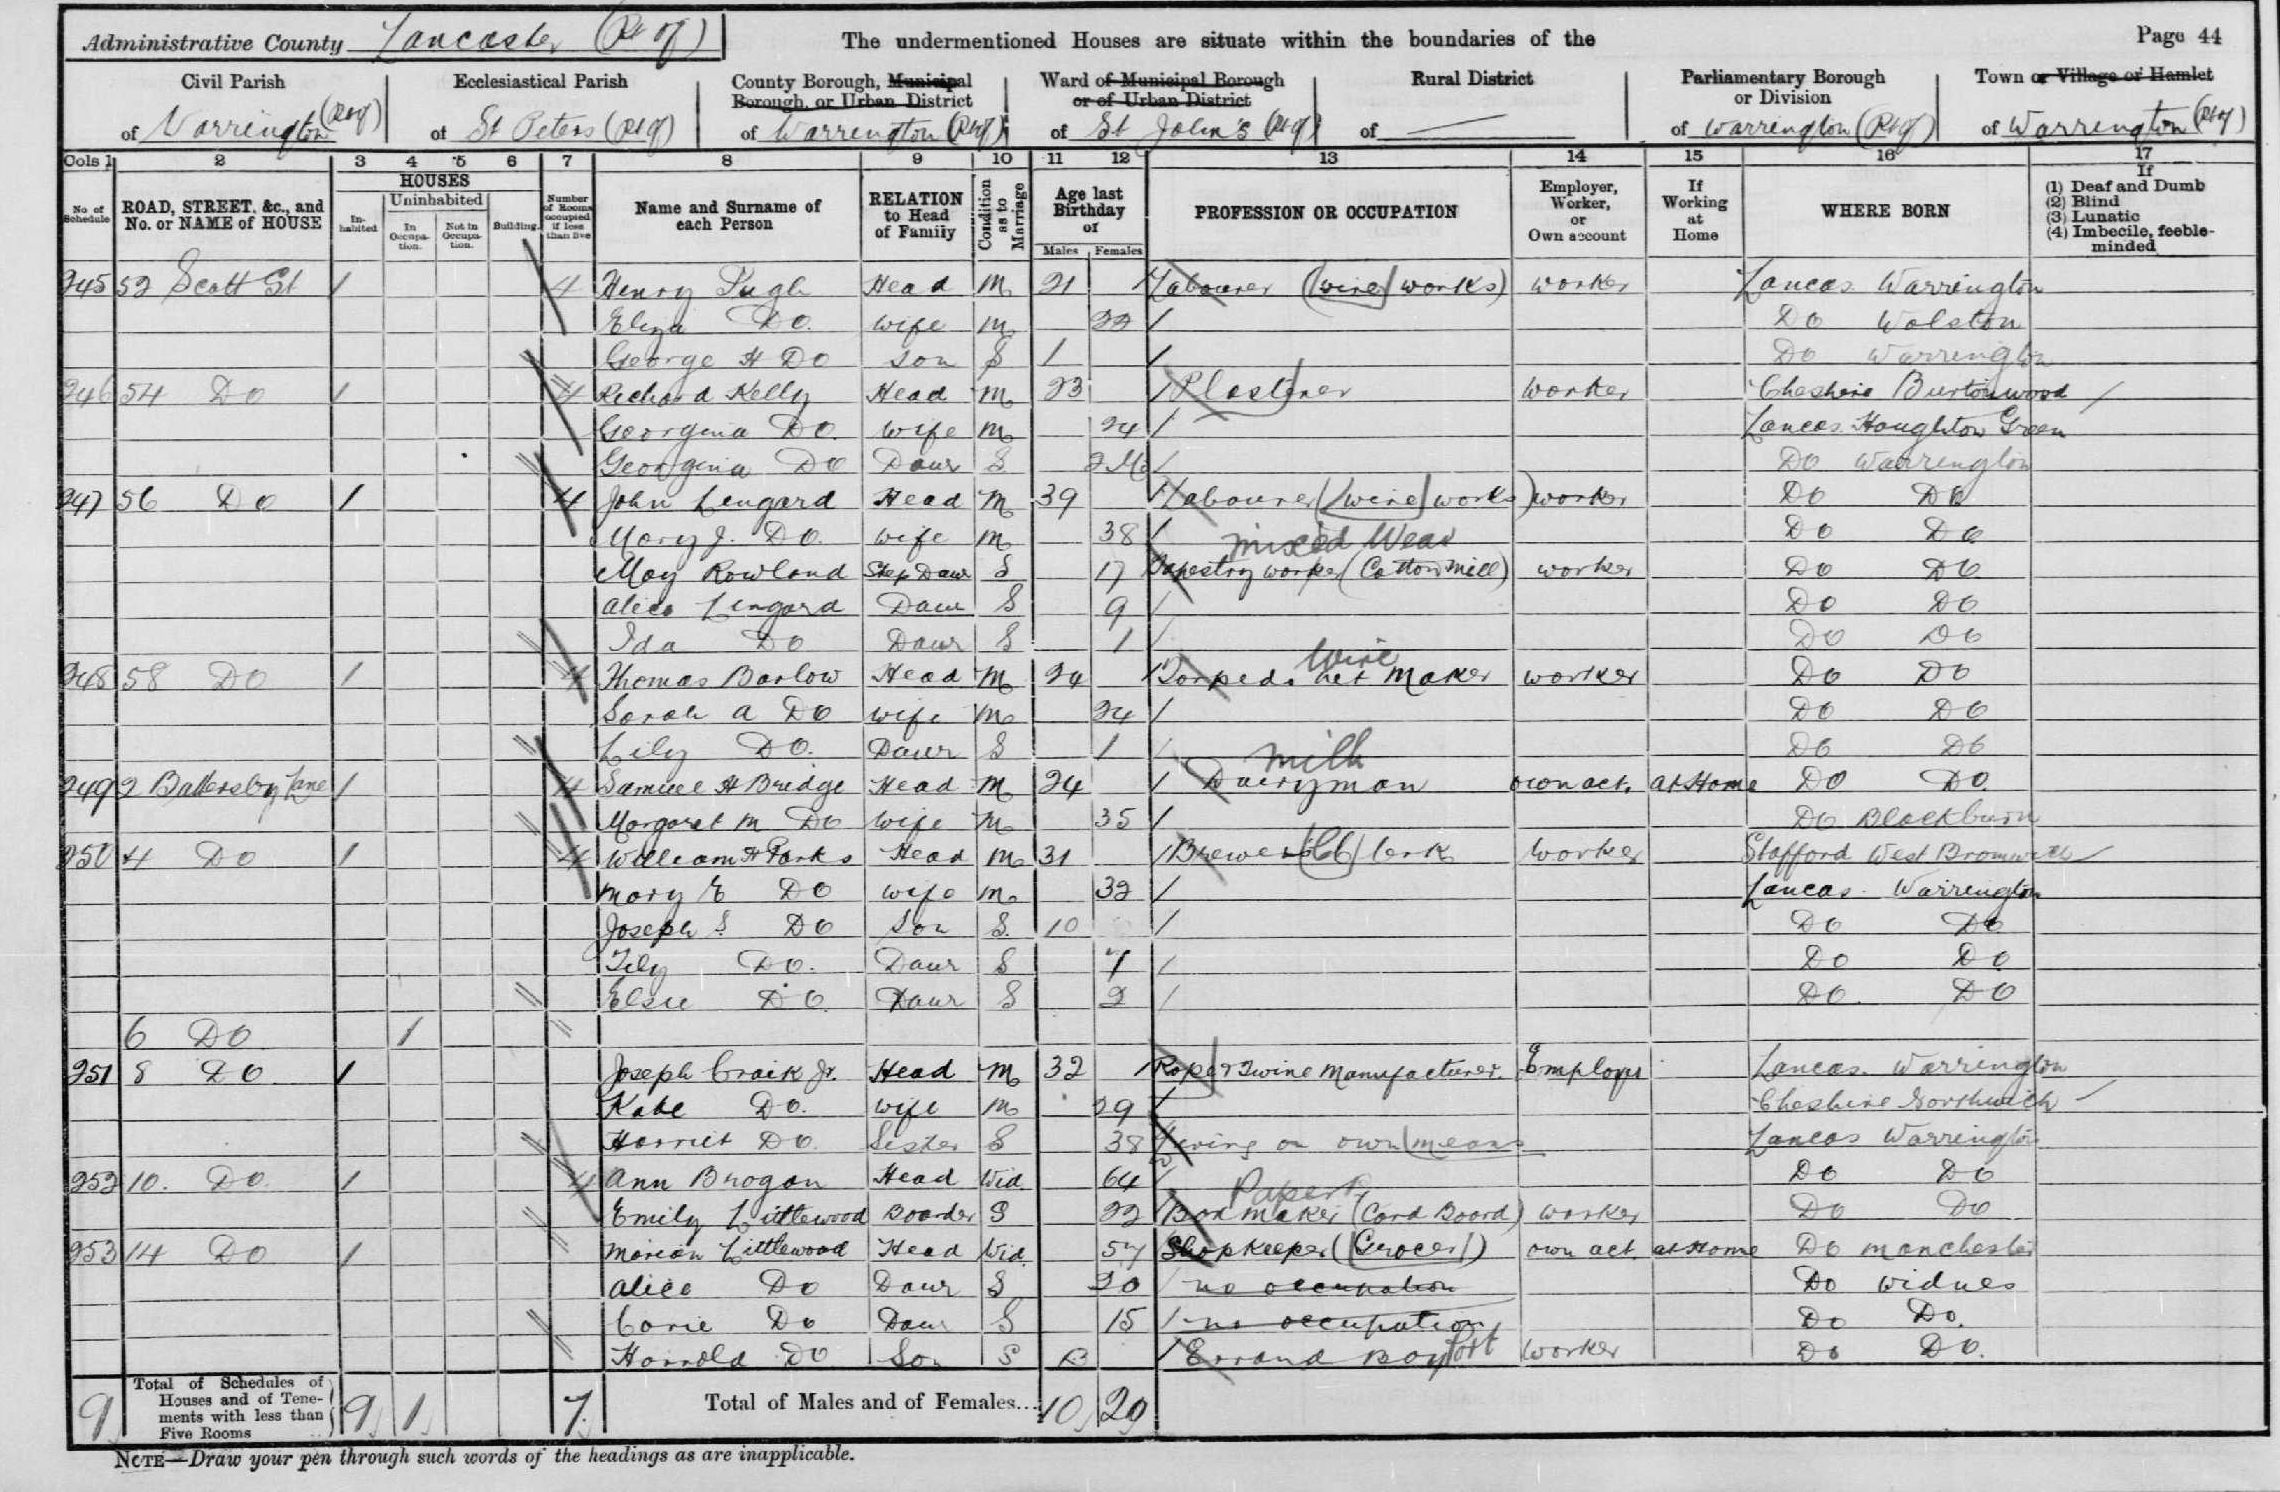 Administrative County Lancaster (Pt of) The undermentioned Houses are situate within the boundaries of the Page 44
Civil Parish Ecclesiastical Parish County Borough, Municipal Borough, or Urban District Ward of Municipal Borough or of Urban District Rural District Parliamentary Borough or Division Town or Village or Hamlet
of Warrington (Pt of) of St Peters (Pt of) of Warrington (Pt of) of St John's (Pt of) of of Warrington (Pt of) of Warrington (Pt of)
Cols 1 2 3 4 5 6 7 8 9 10 11 12 13 14 15 16 17
No of Schedule ROAD, STREET, &c., and No. or NAME of HOUSE HOUSES Inhabited Uninhabited In Occupation. Not in Occupation. Building. Number of Rooms occupied if less than five Name and Surname of each Person RELATION to Head of Family Condition as to Marriage Age last Birthday of Males Females PROFESSION OR OCCUPATION Employer, Worker, or Own account If Working at Home WHERE BORN If (1) Deaf and Dumb (2) Blind (3) Lunatic (4) Imbecile, feeble-minded
245 52 Scott St 1 4 Henry Pugh Head M 21 Labourer (wire works) worker Lancas Warrington
Eliza Do. wife M 22 Do Wolston
George H Do son S 1 Do Warrington
246 54 Do 1 4 Richard Kelly Head M 23 Plasterer worker Cheshire Burtonwood
Georgina Do. wife M 24 Lancas. Houghton Green
Georgina Do Daur S 2 Mo Do Warrington
247 56 Do 1 4 John Lengard Head M 39 Labourer (wire works) worker Do Do
Mary J. Do. wife M 38 Do Do
mixed Wear
May Rowland Step Daur S 17 Tapestry worker (Cotton Mill) worker Do Do
Alice Lengard Daur S 9 Do Do
Ida Do Daur S 1 Do Do
Wire
248 58 Do 1 4 Thomas Barlow Head M 24 Torpedo net maker worker Do Do
Sarah A Do wife M 24 Do Do
Lily Do. Daur S 1 Do Do
milk
249 2 Battersby Lane 1 4 Samuel H Bridge Head M 24 Dairyman own act. at Home Do Do.
Margaret M Do wife M 35 Do Blackburn
250 4 Do 1 4 William H Parks Head M 31 Brewer's Clerk Worker Stafford West Bromwich
Mary E Do wife M 32 Lancas. Warrington
Joseph S. Do Son S. 10 Do Do
Lily Do. Daur S 7 Do Do
Elsie Do. Daur S 2 Do. Do
6 Do 1
251 8 Do 1 Joseph Craik Jr. Head M 32 Rope & Twine Manufacturer. Employer Lancas. Warrington
Kate Do. wife M 29 Cheshire Northwich
Harriet Do. Sister S 38 Living on own means Lancas Warrington
252 10. Do 1 4 Ann Brogan Head Wid. 64 Do Do
Paper
Emily Littlewood Boarder S 22 Box maker (Card Board) worker Do Do
253 14 Do 1 Marion Littlewood Head Wid. 57 Shopkeeper (Grocer) own act. at Home Do Manchester
Alice Do Daur S 20 no occupation Do Widnes
Do Daur S 15 no occupation Do Do.
Harrold Do Son S 13 Errand Boy Port worker Do Do.
9 Total of Schedules of Houses and of Tenements with less than Five Rooms 9 1 7 Total of Males and of Females... 10 29
NOTE—Draw your pen through such words of the headings as are inapplicable.